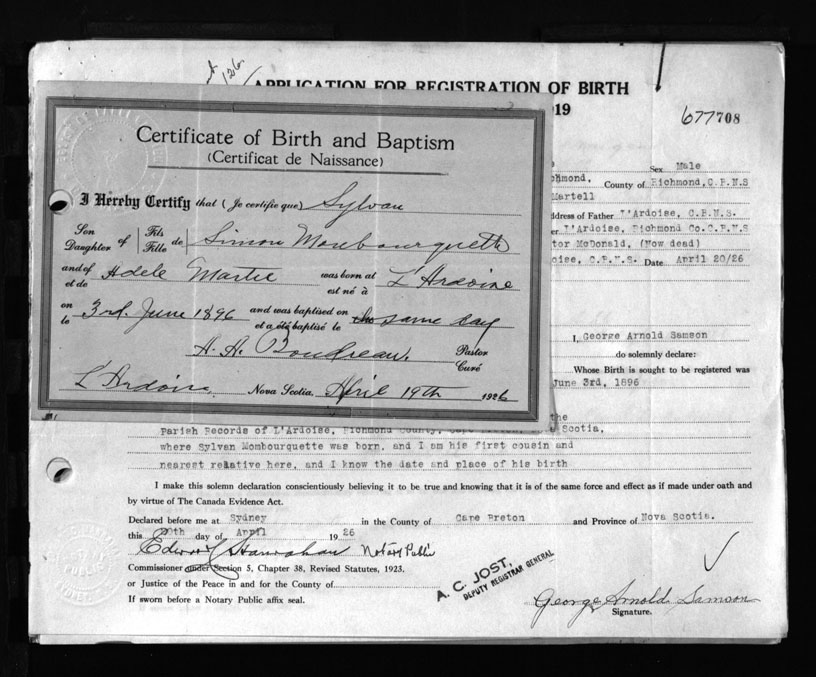 APPLICATION FOR REGISTRATION OF BIRTH
19
677708
Sex Male
hmond, County of Richmond, C.B.N.S
Martell
ddress of Father L'Ardoise, C.B.N.S.
er L'Ardoise, Richmond Co.C.B.N.S
tor McDonald, (Now dead)
oise, C.B.N.S. Date April 20/26
I, George Arnold Samson
do solemnly declare:
Whose Birth is sought to be registered was
June 3rd, 1896
Certificate of Birth and Baptism
(Certificat de Naissance)
I Hereby Certify that (Je certifie que) Sylvan
Son Daughter of Fils Fille de Simon Mombourquette
and of et de Adele Martel was born at est né à L'Ardoise
on le 3rd. June 1896 and was baptised on et a été baptisé le the same day
A. A. Boudreau, Pastor Curé
L'Ardoise, Nova Scotia, April 19th 1926
the
Parish Records of L'Ardoise, Richmond County, Cape Scotia,
where Sylvan Mombourquette was born, and I am his first cousin and
nearest relative here, and I know the date and place of his birth
I make this solemn declaration conscientiously believing it to be true and knowing that it is of the same force and effect as if made under oath and
by virtue of The Canada Evidence Act.
Declared before me at Sydney in the County of Cape Breton and Province of Nova Scotia.
this 20th day of April 1926
Notary Public
Commissioner under Section 5, Chapter 38, Revised Statutes, 1923.
or Justice of the Peace in and for the County of
If sworn before a Notary Public affix seal.
A. C. JOST,
DEPUTY REGISTRAR GENERAL
George Arnold Samson
Signature.